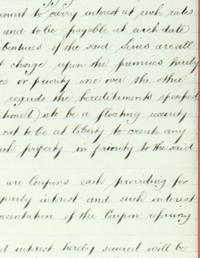 amount to carry interest at such rates
and to be payable at such date
Debentures of the said Series are all
charge upon the premises hereby
or priority one over the other
regards the hereditaments specified
to be a floating security
not to be at liberty to create any
such property in priority to the said
are Coupons each providing for
yearly interest and such interest
presentation of the Coupon referring
interest hereby secured will be